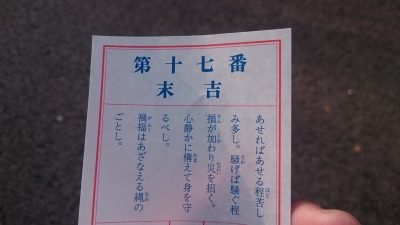 第十七番
末吉
あせればあせる程苦し
み多し。騒げば騒ぐ程
損が加わり災を招く。
心静かに構えて身を守
るべし。
禍福はあざなえる縄の
ごとし。